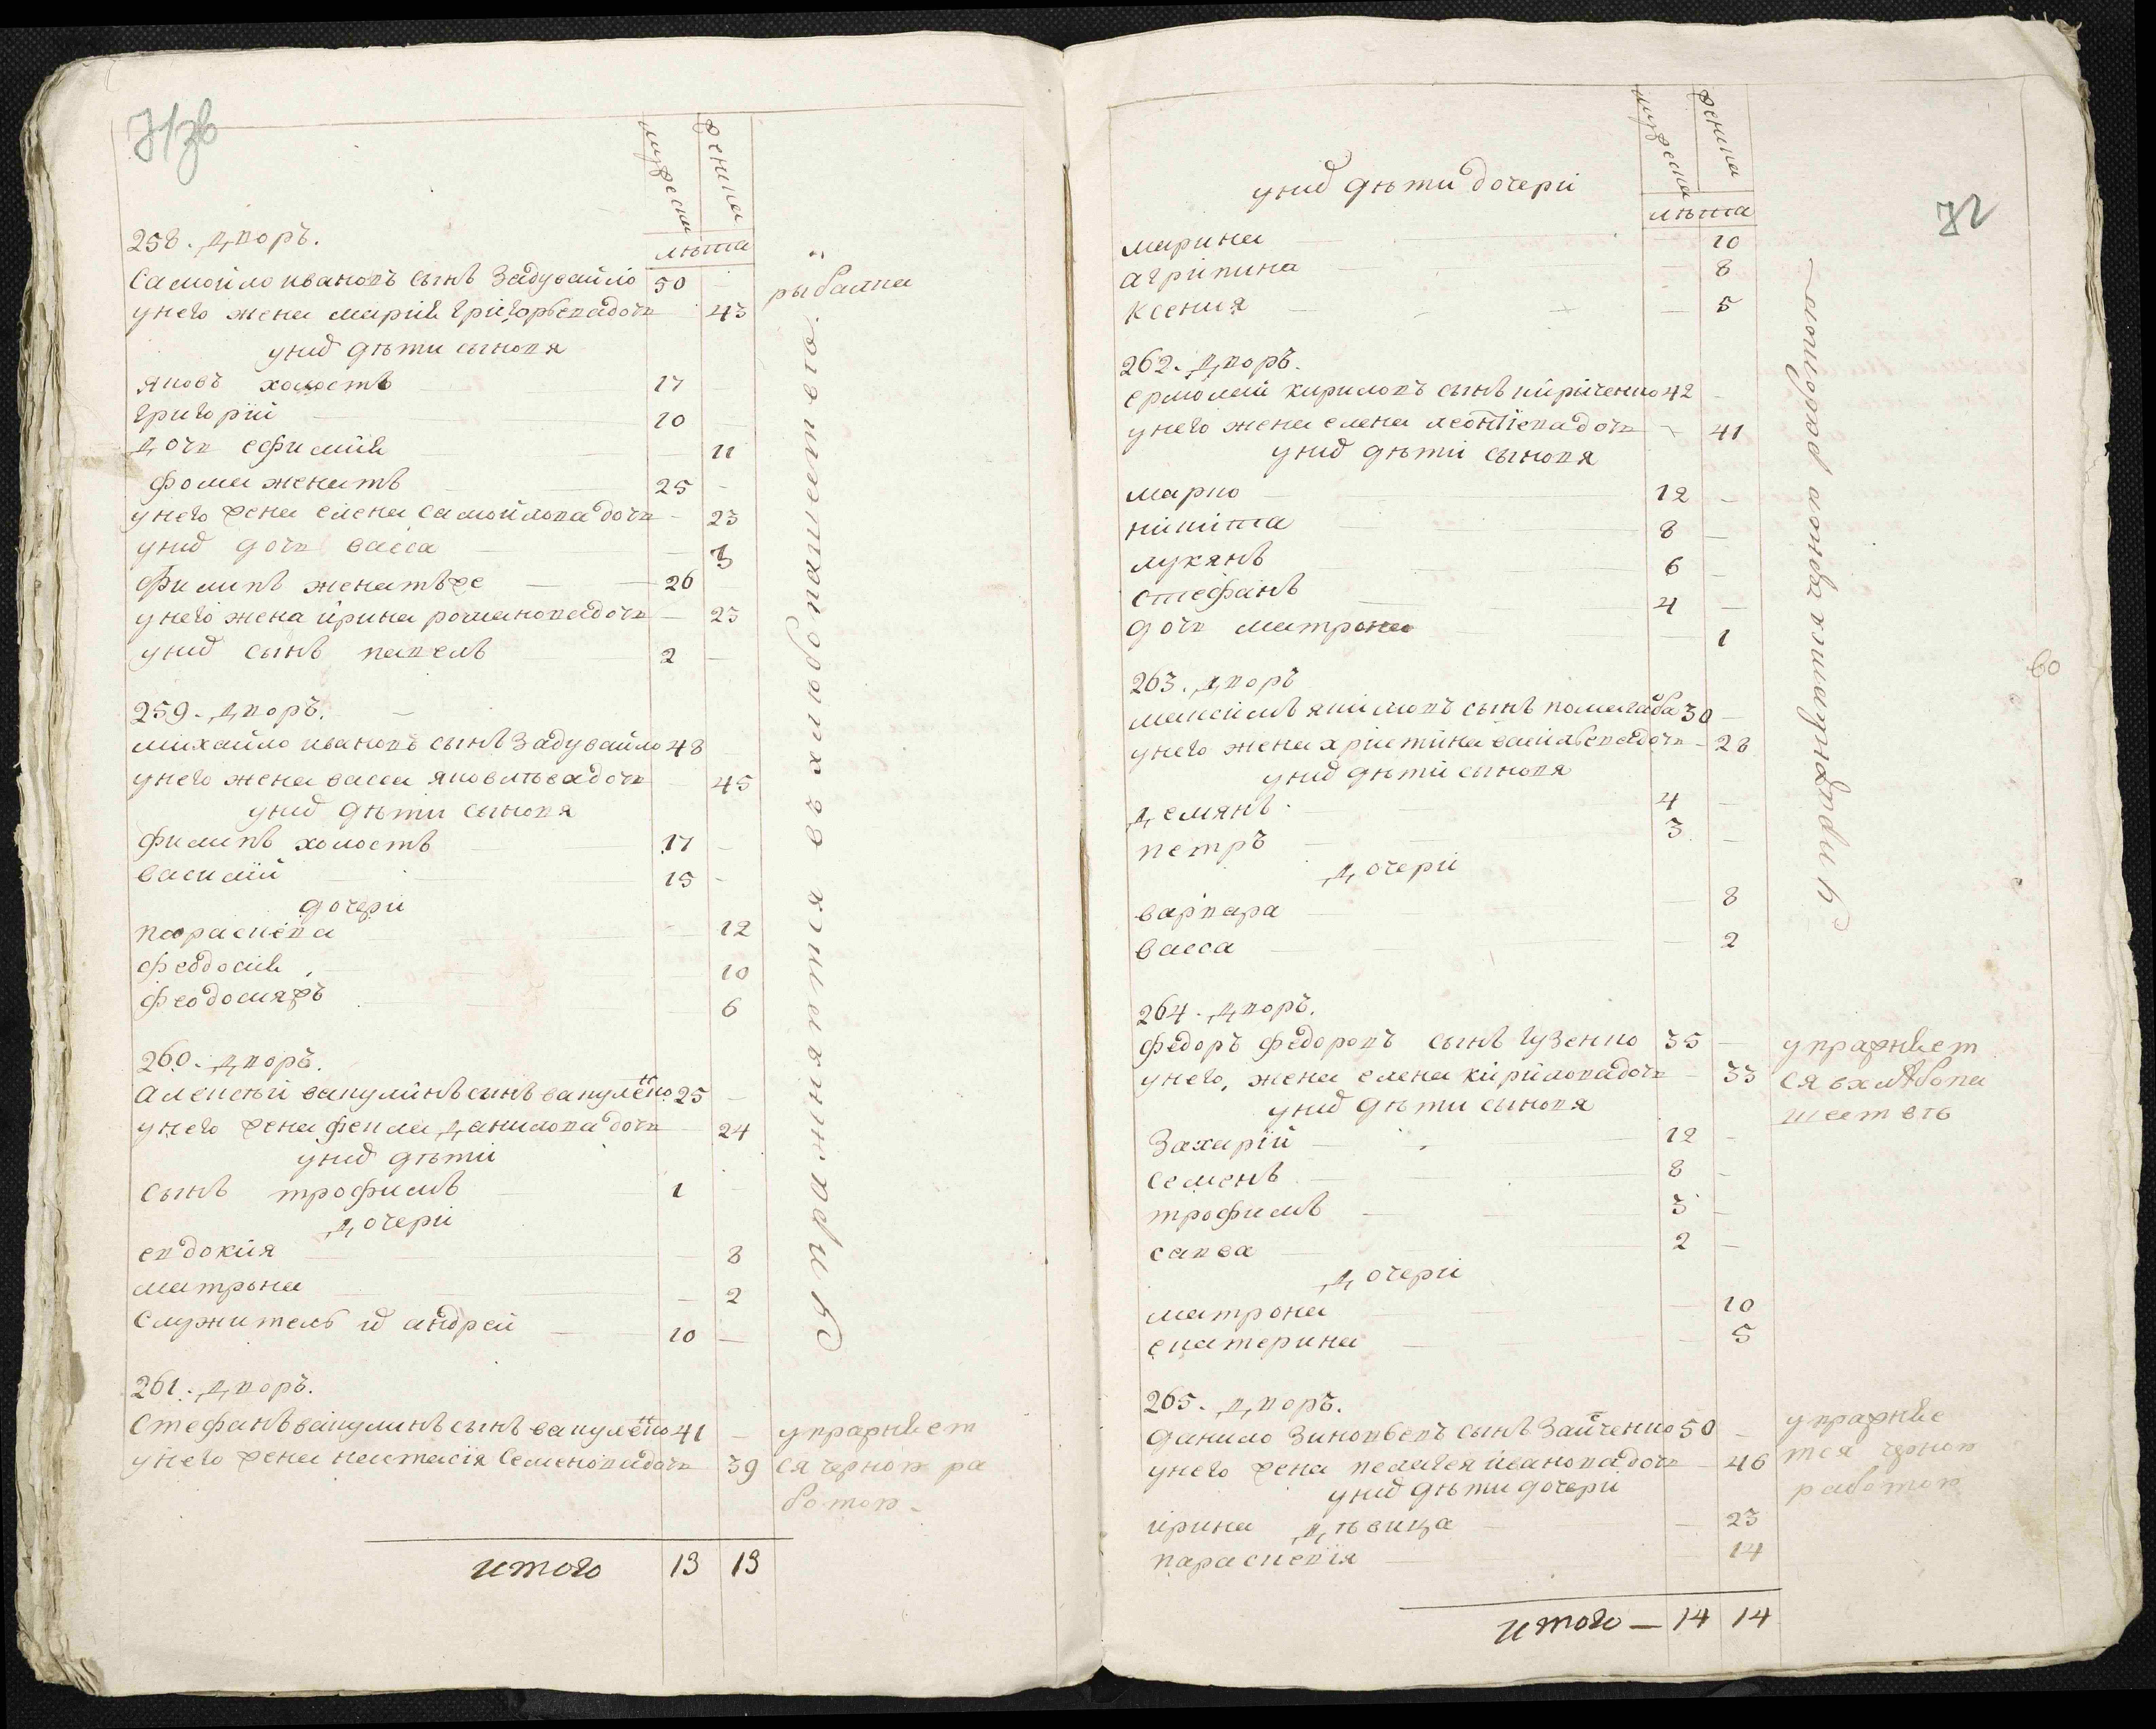 71зв
мужеска
женска
лѣта
258. дворъ.
Самойло ивановъ сынъ Задувайло 50 —
рыбалка
у него жена мария григорьева дочь 43
у них дѣти сыновя
яковъ холостъ 17
григорій 10
дочь ефимия 11
фома женатъ 25 —
у него жена елена самойлова дочь — 23
у них дочь васса — 3
филипъ женатъ же 26
у него жена ирина романова дочь — 23
у них сынъ павелъ 2 —
259. дворъ.
михайло ивановъ сынъ Задувайло 48
у него жена васса яковлѣва дочь 45
у них дѣти сыновя
филипъ холостъ 17 —
василій 15 —
дочери
параскева 12
феодосия 10
феодосия жъ 6
260. дворъ.
алексѣй вакулинъ сынъ вакуленко 25 —
у него жена фекла данилова дочь — 24
у них дѣти
сынъ трофимъ 1 —
дочери
евдокия 8
матрона — 2
Служитель их андрей 10 —
Упражняются въ хлѣбопашестве
261. дворъ.
Стефанъ вакулинъ сынъ вакуленко 41 — упражняет
у него жена настасія семенова дочь 39 ся чорною ра
ботою
итого 13 13
72
мужеска
женска
лѣта
у них дѣти дочери
марина 10
агрипина — 8
ксения — 5
262. дворъ.
ермолай кириловъ сынъ кириченко 42 —
у него жена елена леонтіева дочь — 41
у них дѣти сыновя
марко 12 —
никита 8 —
лукянъ 6 —
стефанъ 4 —
дочь матрона — 1
60
263. дворъ
максимъ якимовъ сынъ помагайба 30 —
у него жена христина васильева дочь — 28
у них дѣти сыновя
демянъ 4 —
петръ 3 —
дочери
варвара 8
васса — 2
упражднуются чернорж работою
264. дворъ.
федоръ федоровъ сынъ гузенко 35 — упражняет
у него жена елена кирилова дочь — 33 ся в хлѣбопа
у них дѣти сыновя
шествѣ
Захарій 12 —
семенъ 8 —
трофимъ 3 —
савва 2 —
дочери
матрона — 10
екатерина — 5
265. дворъ.
данило Зиновьевъ сынъ Зайченко 50 — упражняе
у него жена пелагея иванова дочь — 46 тся чорною
у них дѣти дочери
работою
ирина дѣвица — 23
параскевія 14
итого — 14 14